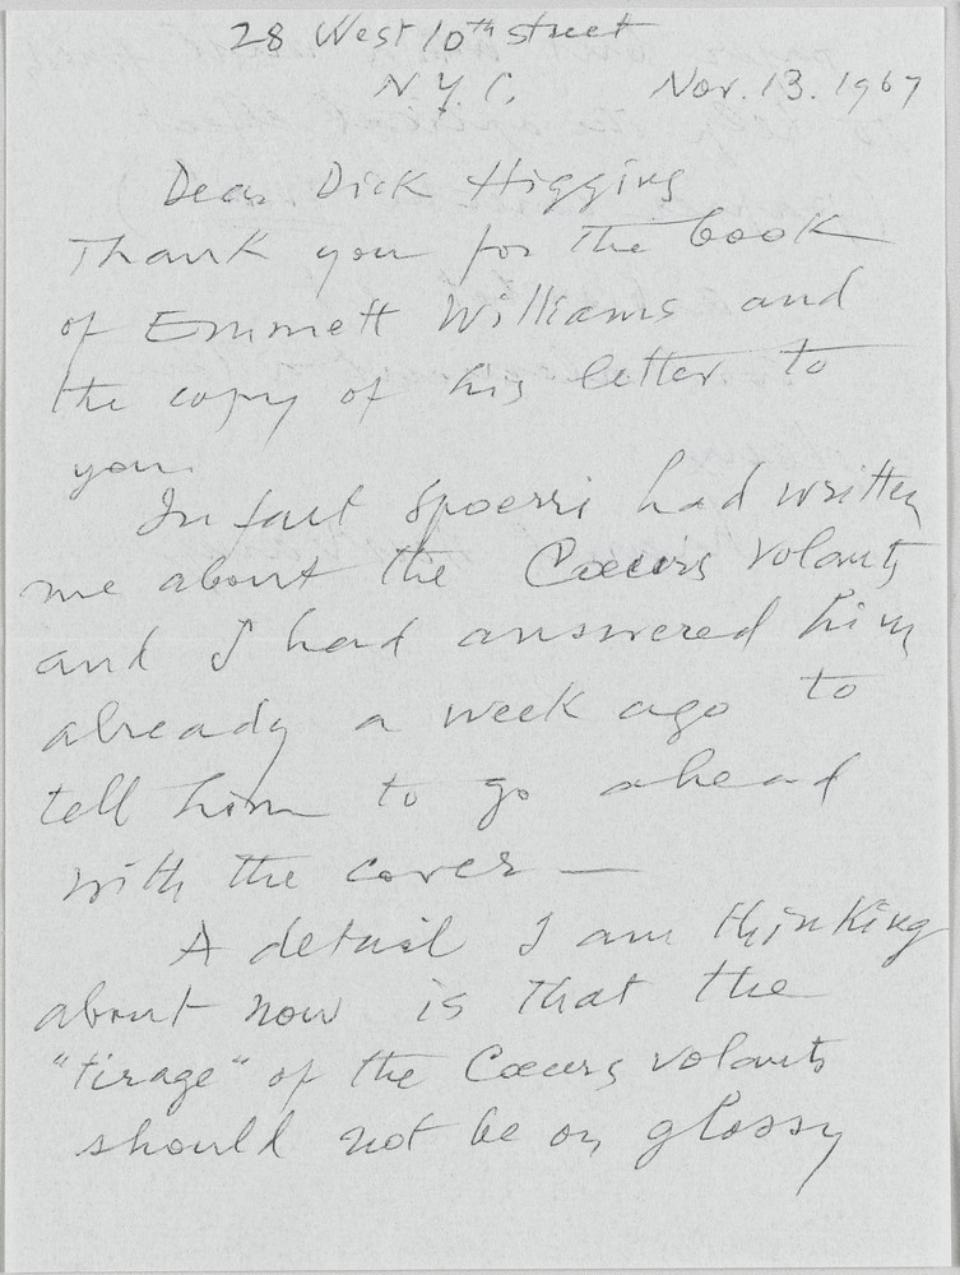 28 West 10th street
N.Y.C. Nov. 13. 1967
Dear Dick Higgins
Thank you for the book
of Emmett Williams and
the copy of his letter to
you.
In fact Spoerri had written
me about the Cœurs volants
and I had answered him
already a week ago to
tell him to go ahead
with the cover —
A detail I am thinking
about now is that the
"tirage" of the Cœurs volants
should not be on glossy